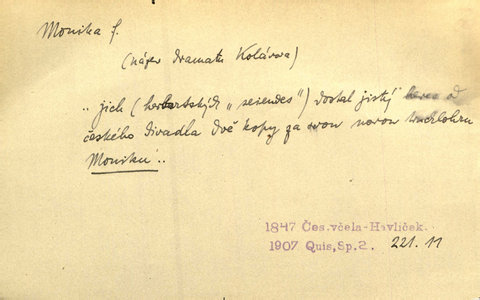 Monika f.
(název dramatu Kolárova)
„ jich (herbartských „seiendes") dostal jistý herec od
českého divadla dvě kopy za svou novou truchlohru
Moniku“..
1847 Čes.včela-Havlíček.
1907 Quis, Sp.2. 221. 11